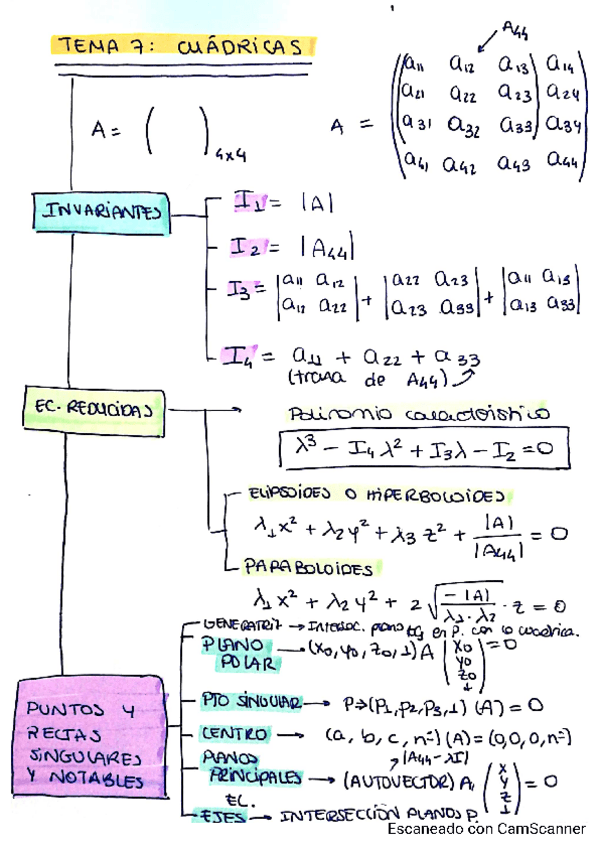 TEMA 7: CUÁDRICAS
A44
A = ( )4x4
A = (a11 a12 a13 a14
a21 a22 a23 a24
a31 a32 a33 a34
a41 a42 a43 a44)
INVARIANTES
I1 = |A|
I2 = |A44|
I3 = |a11 a12| + |a22 a23| + |a11 a13|
|a12 a22| |a23 a33| |a13 a33|
I4 = a11 + a22 + a33
(traza de A44)
EC. REDUCIDAS → Polinomio característico
λ³ - I4 λ² + I3 λ - I2 = 0
ELIPSOIDES O HIPERBOLOIDES
λ1x² + λ2y² + λ3z² + |A|/|A44| = 0
PARABOLOIDES
λ1x² + λ2y² + 2√(-|A|/(λ1·λ2)) · z = 0
PUNTOS Y
RECTAS
SINGULARES
Y NOTABLES
GENERATRIZ → INTERSEC. plano tg en P. con la cuádrica.
PLANO
POLAR → (x0, y0, z0, 1) A (x0 y0 z0 1) = 0
PTO SINGULAR → P→(P1, P2, P3, 1) (A) = 0
CENTRO → (a, b, c, nº) (A) = (0, 0, 0, nº)
|A44 - λI|
PLANOS
PRINCIPALES → (AUTOVECTOR) A (x y z 1) = 0
EC.
EJES → INTERSECCIÓN PLANOS P.
Escaneado con CamScanner